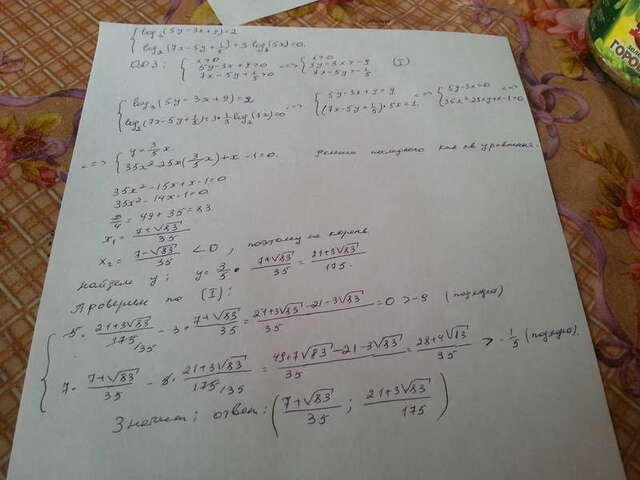 log₃(5y-3x+9)=2
log₂(7x-5y+1/5)+3 log₈(5x)=0.
ОДЗ: { x>0 5y-3x+9>0 7x-5y+1/5>0 <=> { x>0 5y-3x>-9 7x-5y>-1/5 (I)
{ log₃(5y-3x+9)=2 log₂(7x-5y+1/5)+3*1/3 log₂(5x)=0 <=> { 5y-3x+9=9 (7x-5y+1/5)*5x=1. <=> { 5y-3x=0 35x²-25xy+x-1=0 <=>
<=> { y=3/5 x 35x²-25x(3/5x)+x-1=0. Решаем как кв уравнение.
35x²-15x+x-1=0
35x²-14x-1=0.
D/4 = 49+35=83
x₁= (7+√83)/35
x₂= (7-√83)/35 <0, поэтому не корень
Найдем y: y=3/5 • (7+√83)/35 = (21+3√83)/175.
Проверим по (I):
5• (21+3√83)/175/35 - 3• (7+√83)/35 = (21+3√83-21-3√83)/35 =0 >-9 (подходит)
7• (7+√83)/35 - 5• (21+3√83)/175/35 = (49+7√83-21-3√83)/35 = (28+4√83)/35 > -1/5 (подходит).
Значит: ответ: ( (7+√83)/35 ; (21+3√83)/175 )